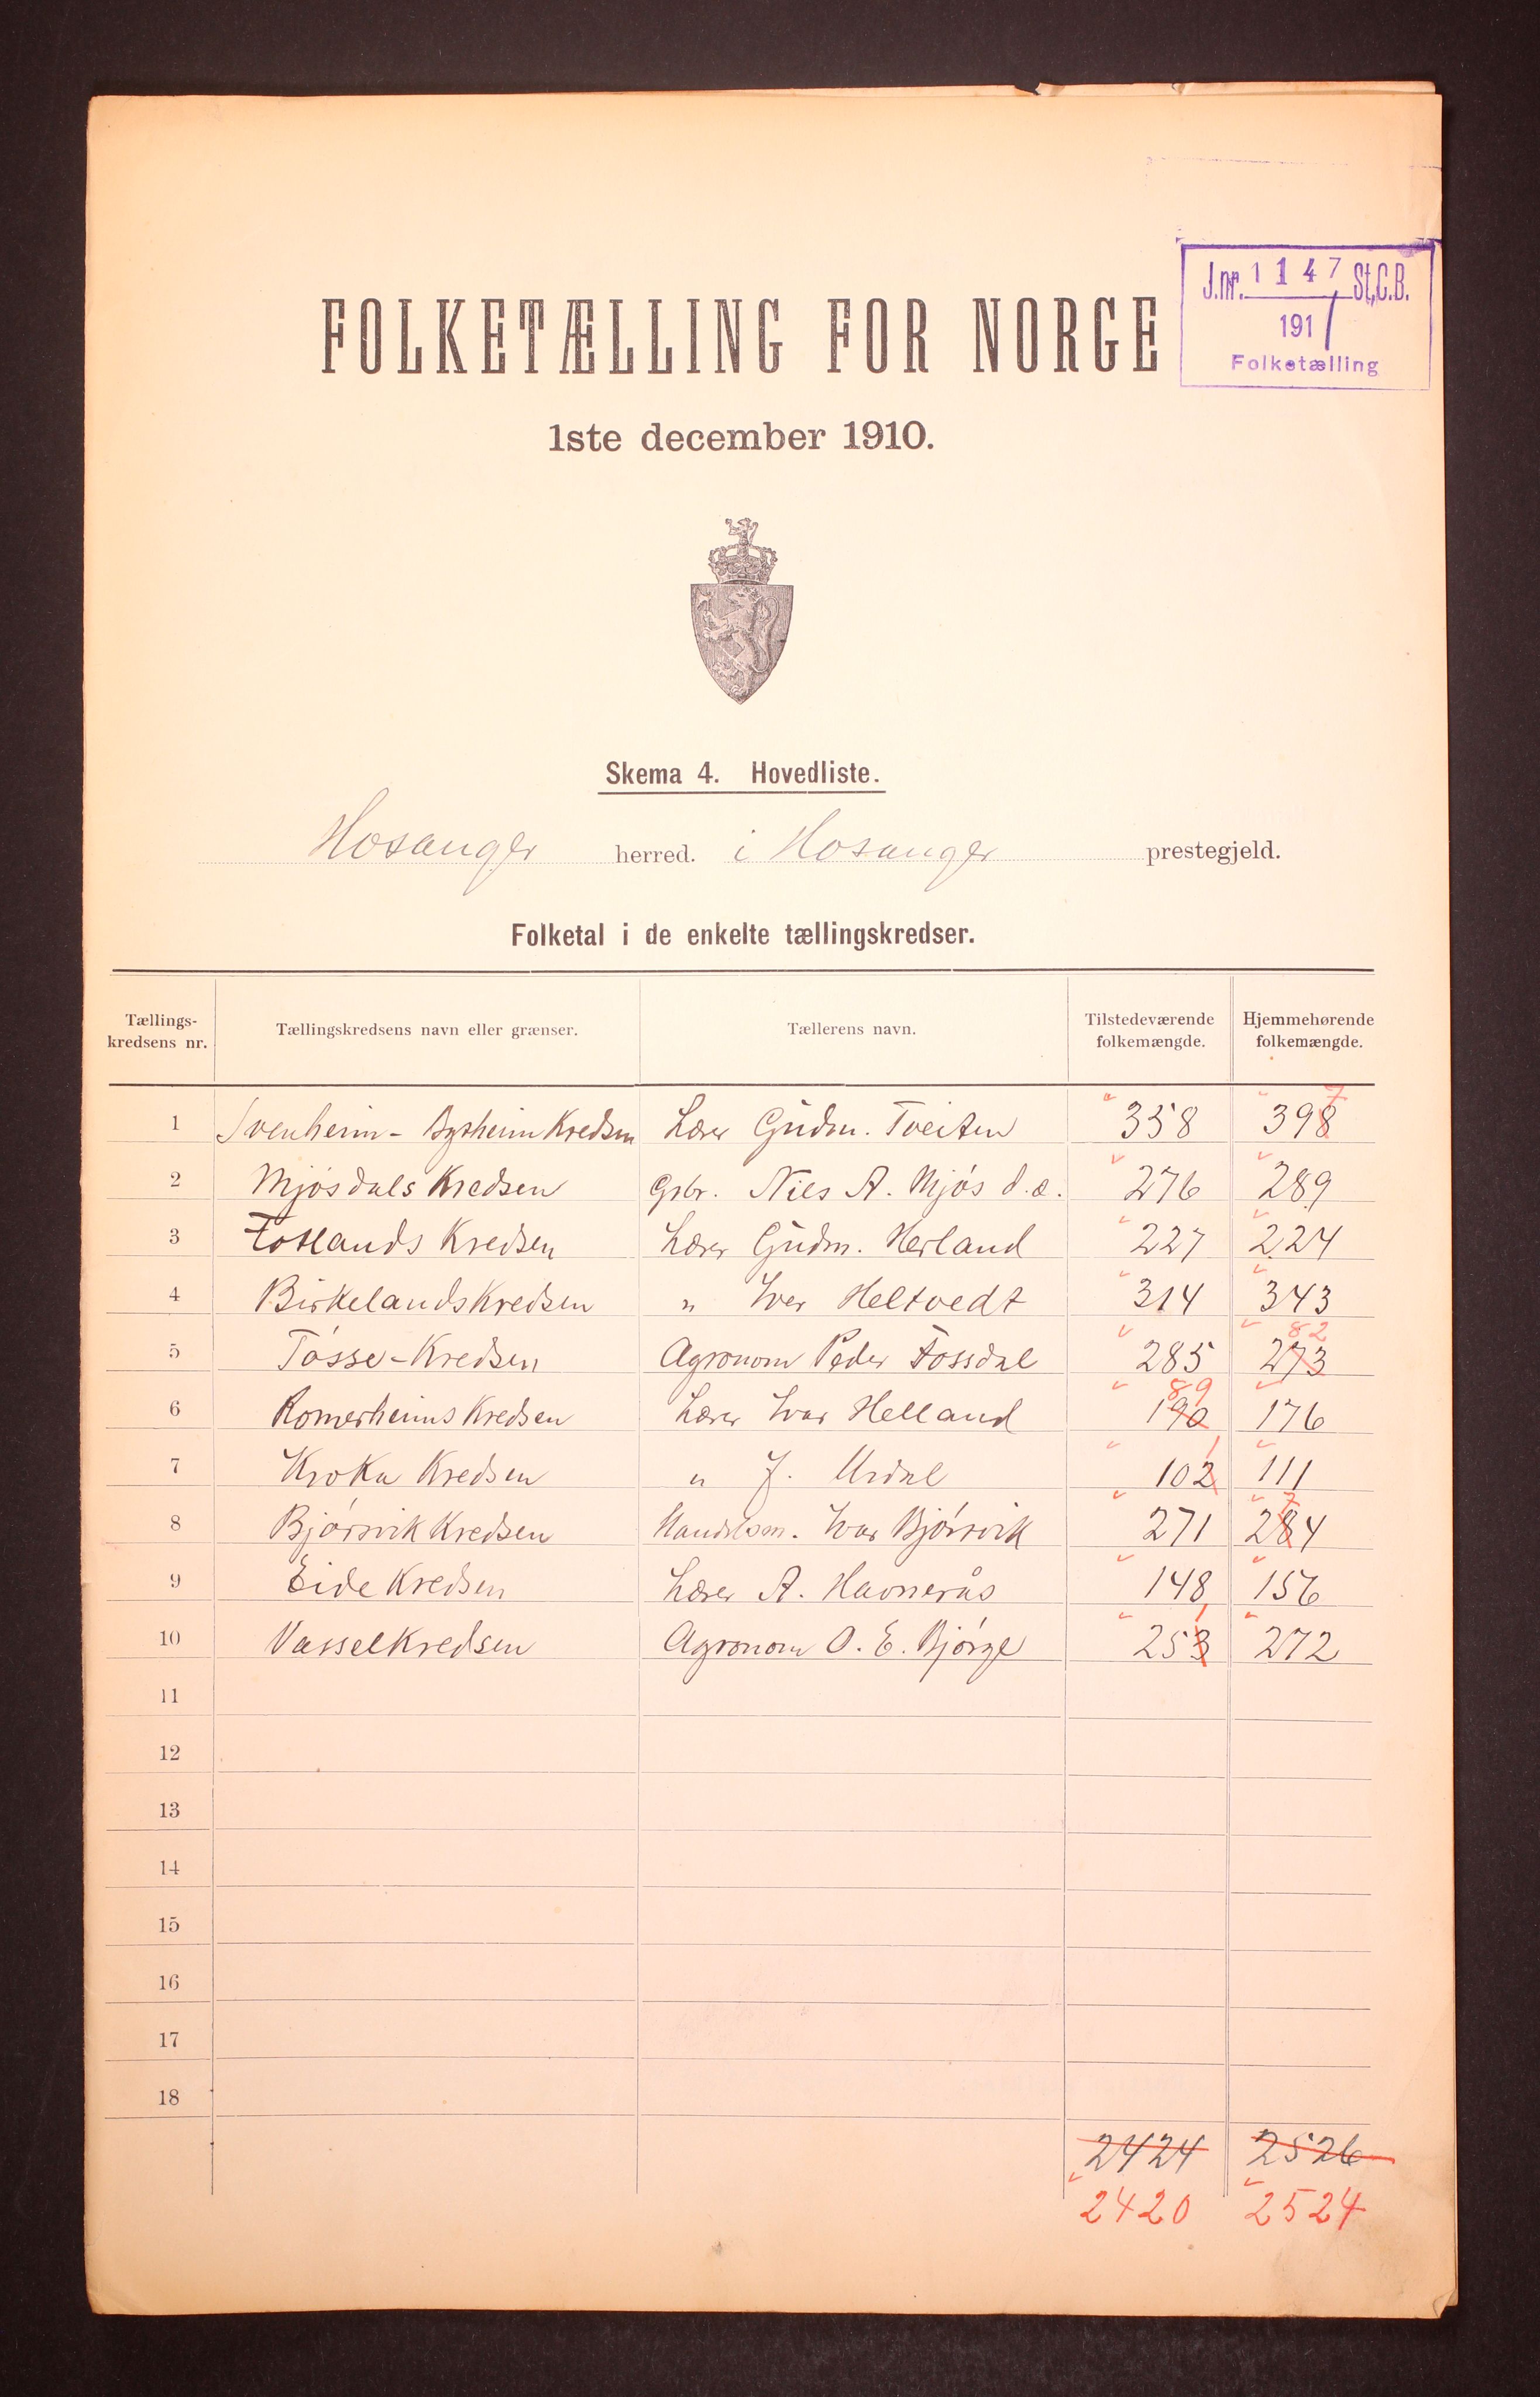 J.nr. 1147 St.C.B.
1911
Folketælling
FOLKETÆLLING FOR NORGE
1ste december 1910.
Skema 4. Hovedliste.
Hosanger herred. i Hosanger prestegjeld.
Folketal i de enkelte tællingskredser.
Tællings-kredsens nr. Tællingskredsens navn eller grænser. Tællerens navn. Tilstedeværende folkemængde. Hjemmehørende folkemængde.
7
1 Svenheim - Byrheim Kredsen Lærer Gudm. Tveiten 358 398
2 Mjøsdals Kredsen Gbr. Nils A. Mjøs d.æ. 276 289
3 Fotlands Kredsen Lærer Gudm. Herland 227 224
4 Birkelands Kredsen " Iver Heltvedt 314 343
82
5 Tosse-Kredsen Agronom Peder Fossdal 285 273
89
6 Romerheims Kredsen Lærer Ivar Helland 190 176
1
7 Kroka Kredsen " J. Urdal 102 111
7
8 Bjørsvik Kredsen Handelsm. Ivar Bjørsvik 271 284
9 Eide Kredsen Lærer A. Havnerås 148 156
1
10 Vasselkredsen Agronom O. E. Bjørge 253 272
11
12
13
14
15
16
17
18
2424 2526
2420 2524